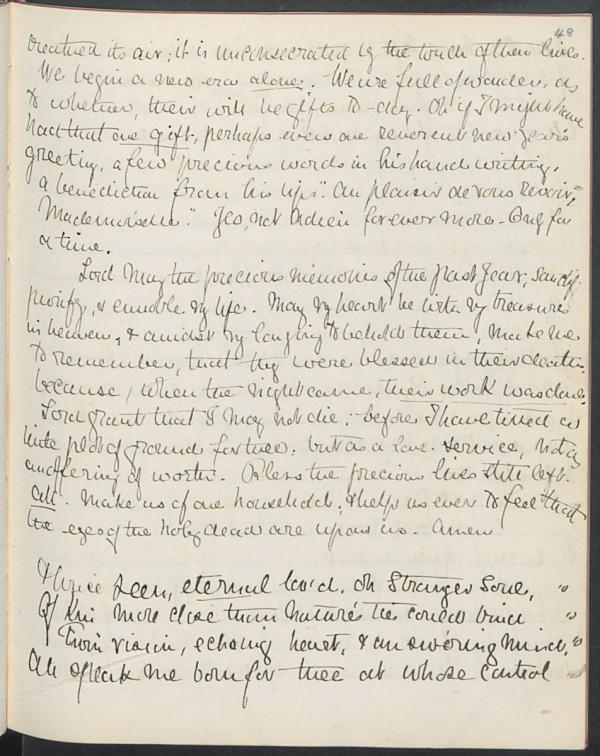 48
breathed its air; it is unconsecrated by the touch of their lives.
We begin a new era alone. We are full of wonder, as
to whether, their will be gifts to-day. Oh if I might have
had that one gift, perhaps even one reverent new year's
greeting, a few precious words in his hand writing,
a benediction from his lips. "Au plaisir de vous revoir,
Mademoiselle." Yes, not Adieu forever more - Only for
a time.
Lord May the precious memories of the past year, sanctify
purify, & ennoble my life. May my heart be with my treasure
in heaven, & amidst my longing to behold them, make me
to remember, that they were blessed in their death,
because, when the night came, their work was done.
Lord grant that I may not die; before I have tilled a
little plot of ground for thee. but as a love service, not as
an offering of worth. Bless the precious lives still left.
All. Make us of one household, & help us ever to feel that
the eyes of the holy dead are upon us. Amen
Thrice seen, eternal loved, oh Stranger Soul, "
Of kin more close than nature's ties could bind "
Twin vision, echoing heart, & answering mind, "
All speak me born for thee at whose control "